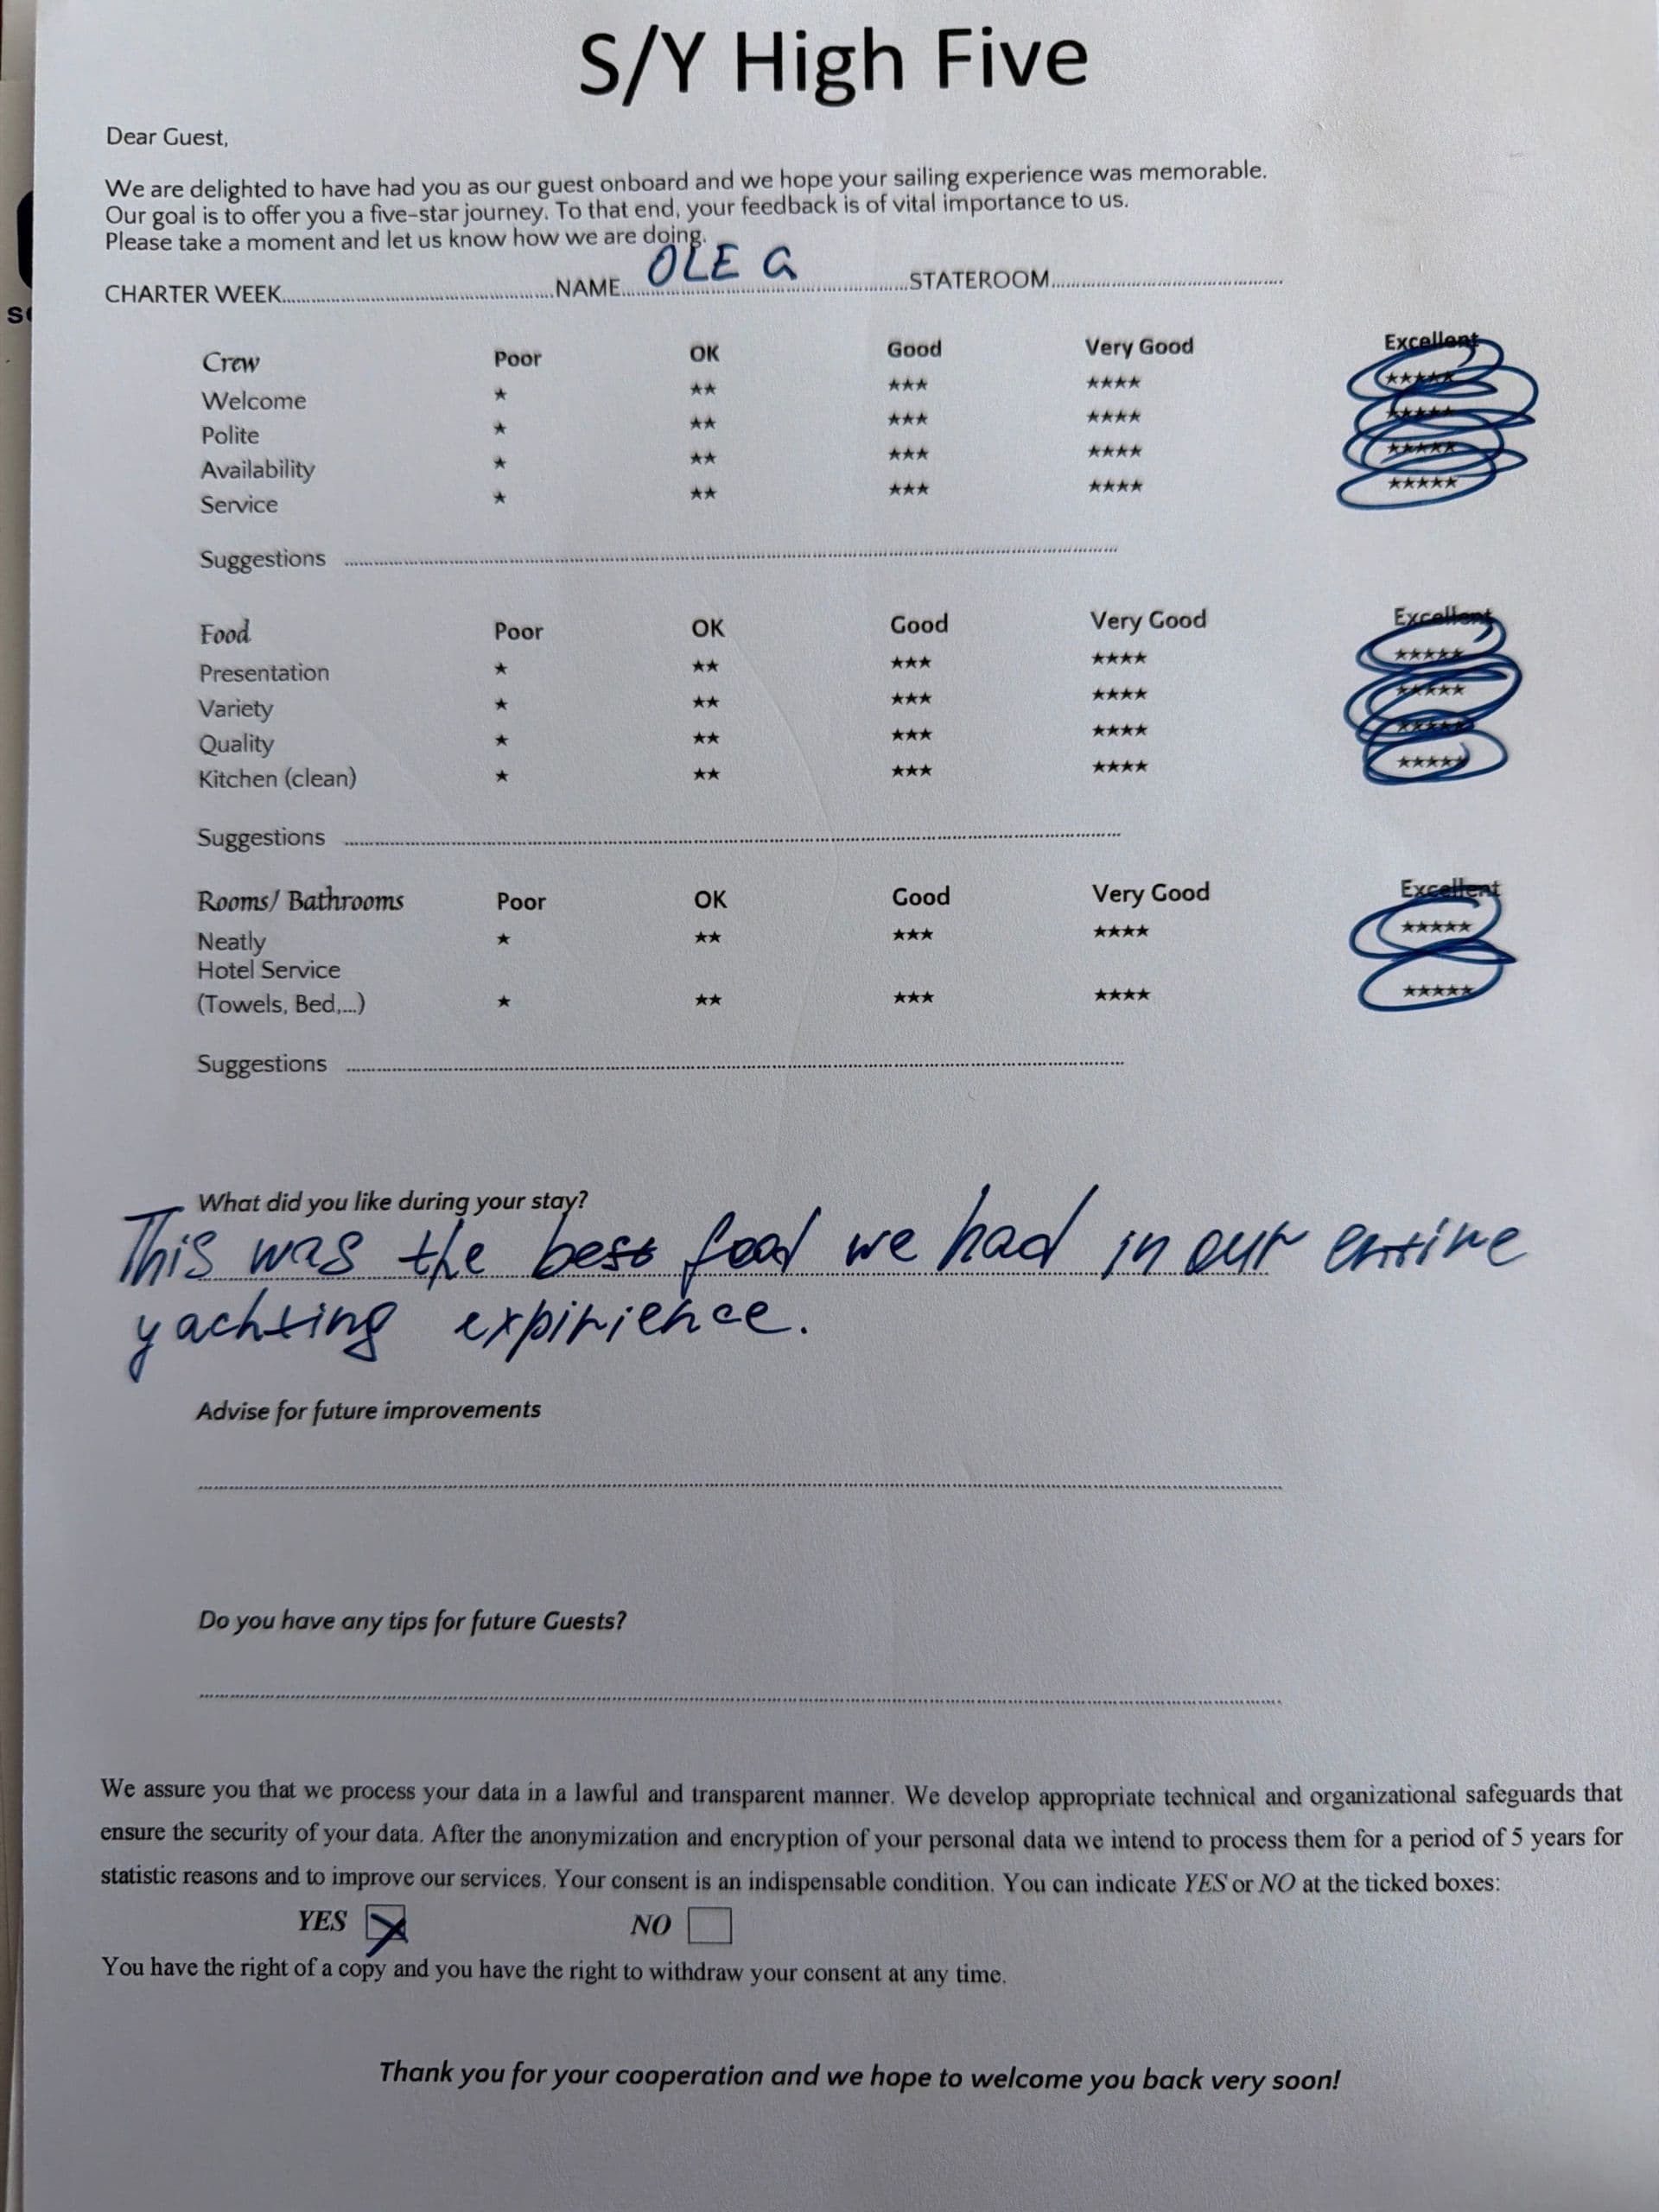 S/Y High Five
Dear Guest,
We are delighted to have had you as our guest onboard and we hope your sailing experience was memorable.
Our goal is to offer you a five-star journey. To that end, your feedback is of vital importance to us.
Please take a moment and let us know how we are doing.
CHARTER WEEK NAME OLEG STATEROOM
Crew Poor OK Good Very Good Excellent
Welcome ★ ★★ ★★★ ★★★★ ★★★★★
Polite ★ ★★ ★★★ ★★★★ ★★★★★
Availability ★ ★★ ★★★ ★★★★ ★★★★★
Service ★ ★★ ★★★ ★★★★ ★★★★★
Suggestions
Food Poor OK Good Very Good Excellent
Presentation ★ ★★ ★★★ ★★★★ ★★★★★
Variety ★ ★★ ★★★ ★★★★ ★★★★★
Quality ★ ★★ ★★★ ★★★★ ★★★★★
Kitchen (clean) ★ ★★ ★★★ ★★★★ ★★★★★
Suggestions
Rooms/ Bathrooms Poor OK Good Very Good Excellent
Neatly ★ ★★ ★★★ ★★★★ ★★★★★
Hotel Service
(Towels, Bed,...) ★ ★★ ★★★ ★★★★ ★★★★★
Suggestions
What did you like during your stay?
This was the best food we had in our entire
yachting expirience.
Advise for future improvements
Do you have any tips for future Guests?
We assure you that we process your data in a lawful and transparent manner. We develop appropriate technical and organizational safeguards that
ensure the security of your data. After the anonymization and encryption of your personal data we intend to process them for a period of 5 years for
statistic reasons and to improve our services. Your consent is an indispensable condition. You can indicate YES or NO at the ticked boxes:
YES NO
You have the right of a copy and you have the right to withdraw your consent at any time.
Thank you for your cooperation and we hope to welcome you back very soon!